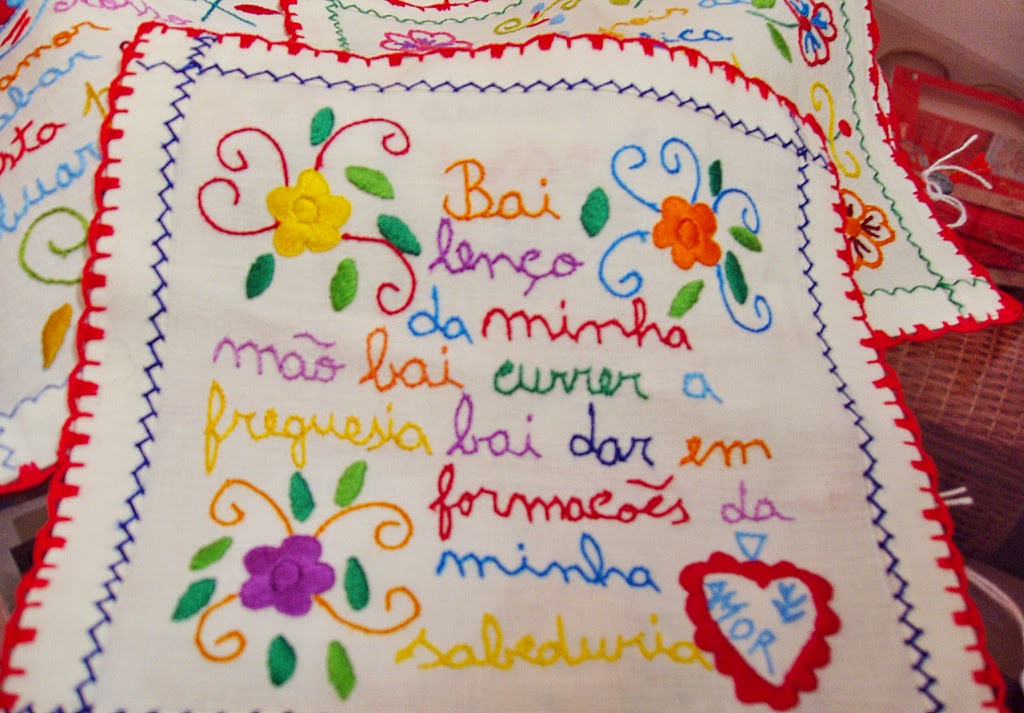 Bai
lenço
da minha
mão bai currer a
freguesia bai dar em
formacões da
minha
sabeduria
AMOR
amor
sta